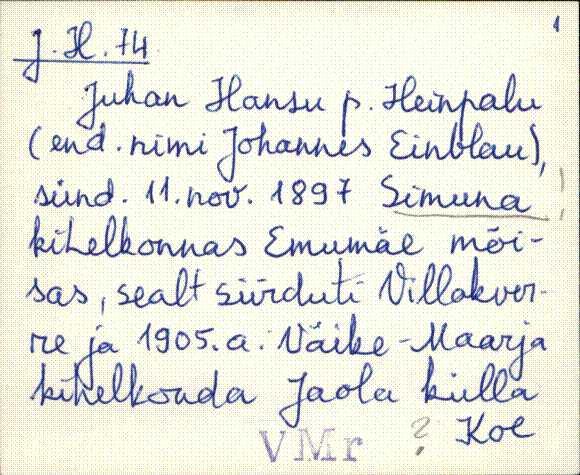 1
J. H. 74
Juhan Hansu p. Heinpalu
(end. nimi Johannes Einblau),
sünd. 11. nov. 1897 Simuna
kihelkonnas Emumäe mõi-
sas, sealt siirduti Villakver-
re ja 1905. a. Väike-Maarja
kihelkonda Jaola külla
VMr ? Koe